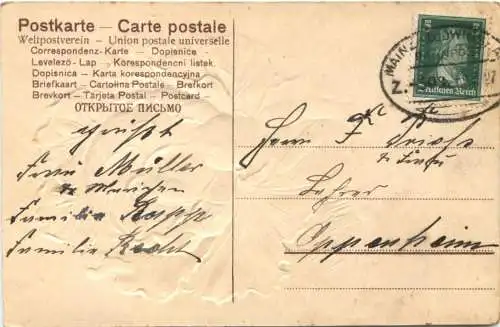 Postkarte — Carte postale
Weltpostverein - Union postale universelle
Correspondenz-Karte - Dopisnice
Levelezö-Lap - Korespondencni listek
Dopisnica - Karta korespondencyjna
Briefkaart - Cartolina Postale - Brefkort
Brevkort - Tarjeta Postal - Postcard
ОТКРЫТОЕ ПИСЬМО
Frau Müller
Familie Rapp
Familie
MAINZ
Z.
Deutsches Reich
Herrn
Lehrer
Oppenheim